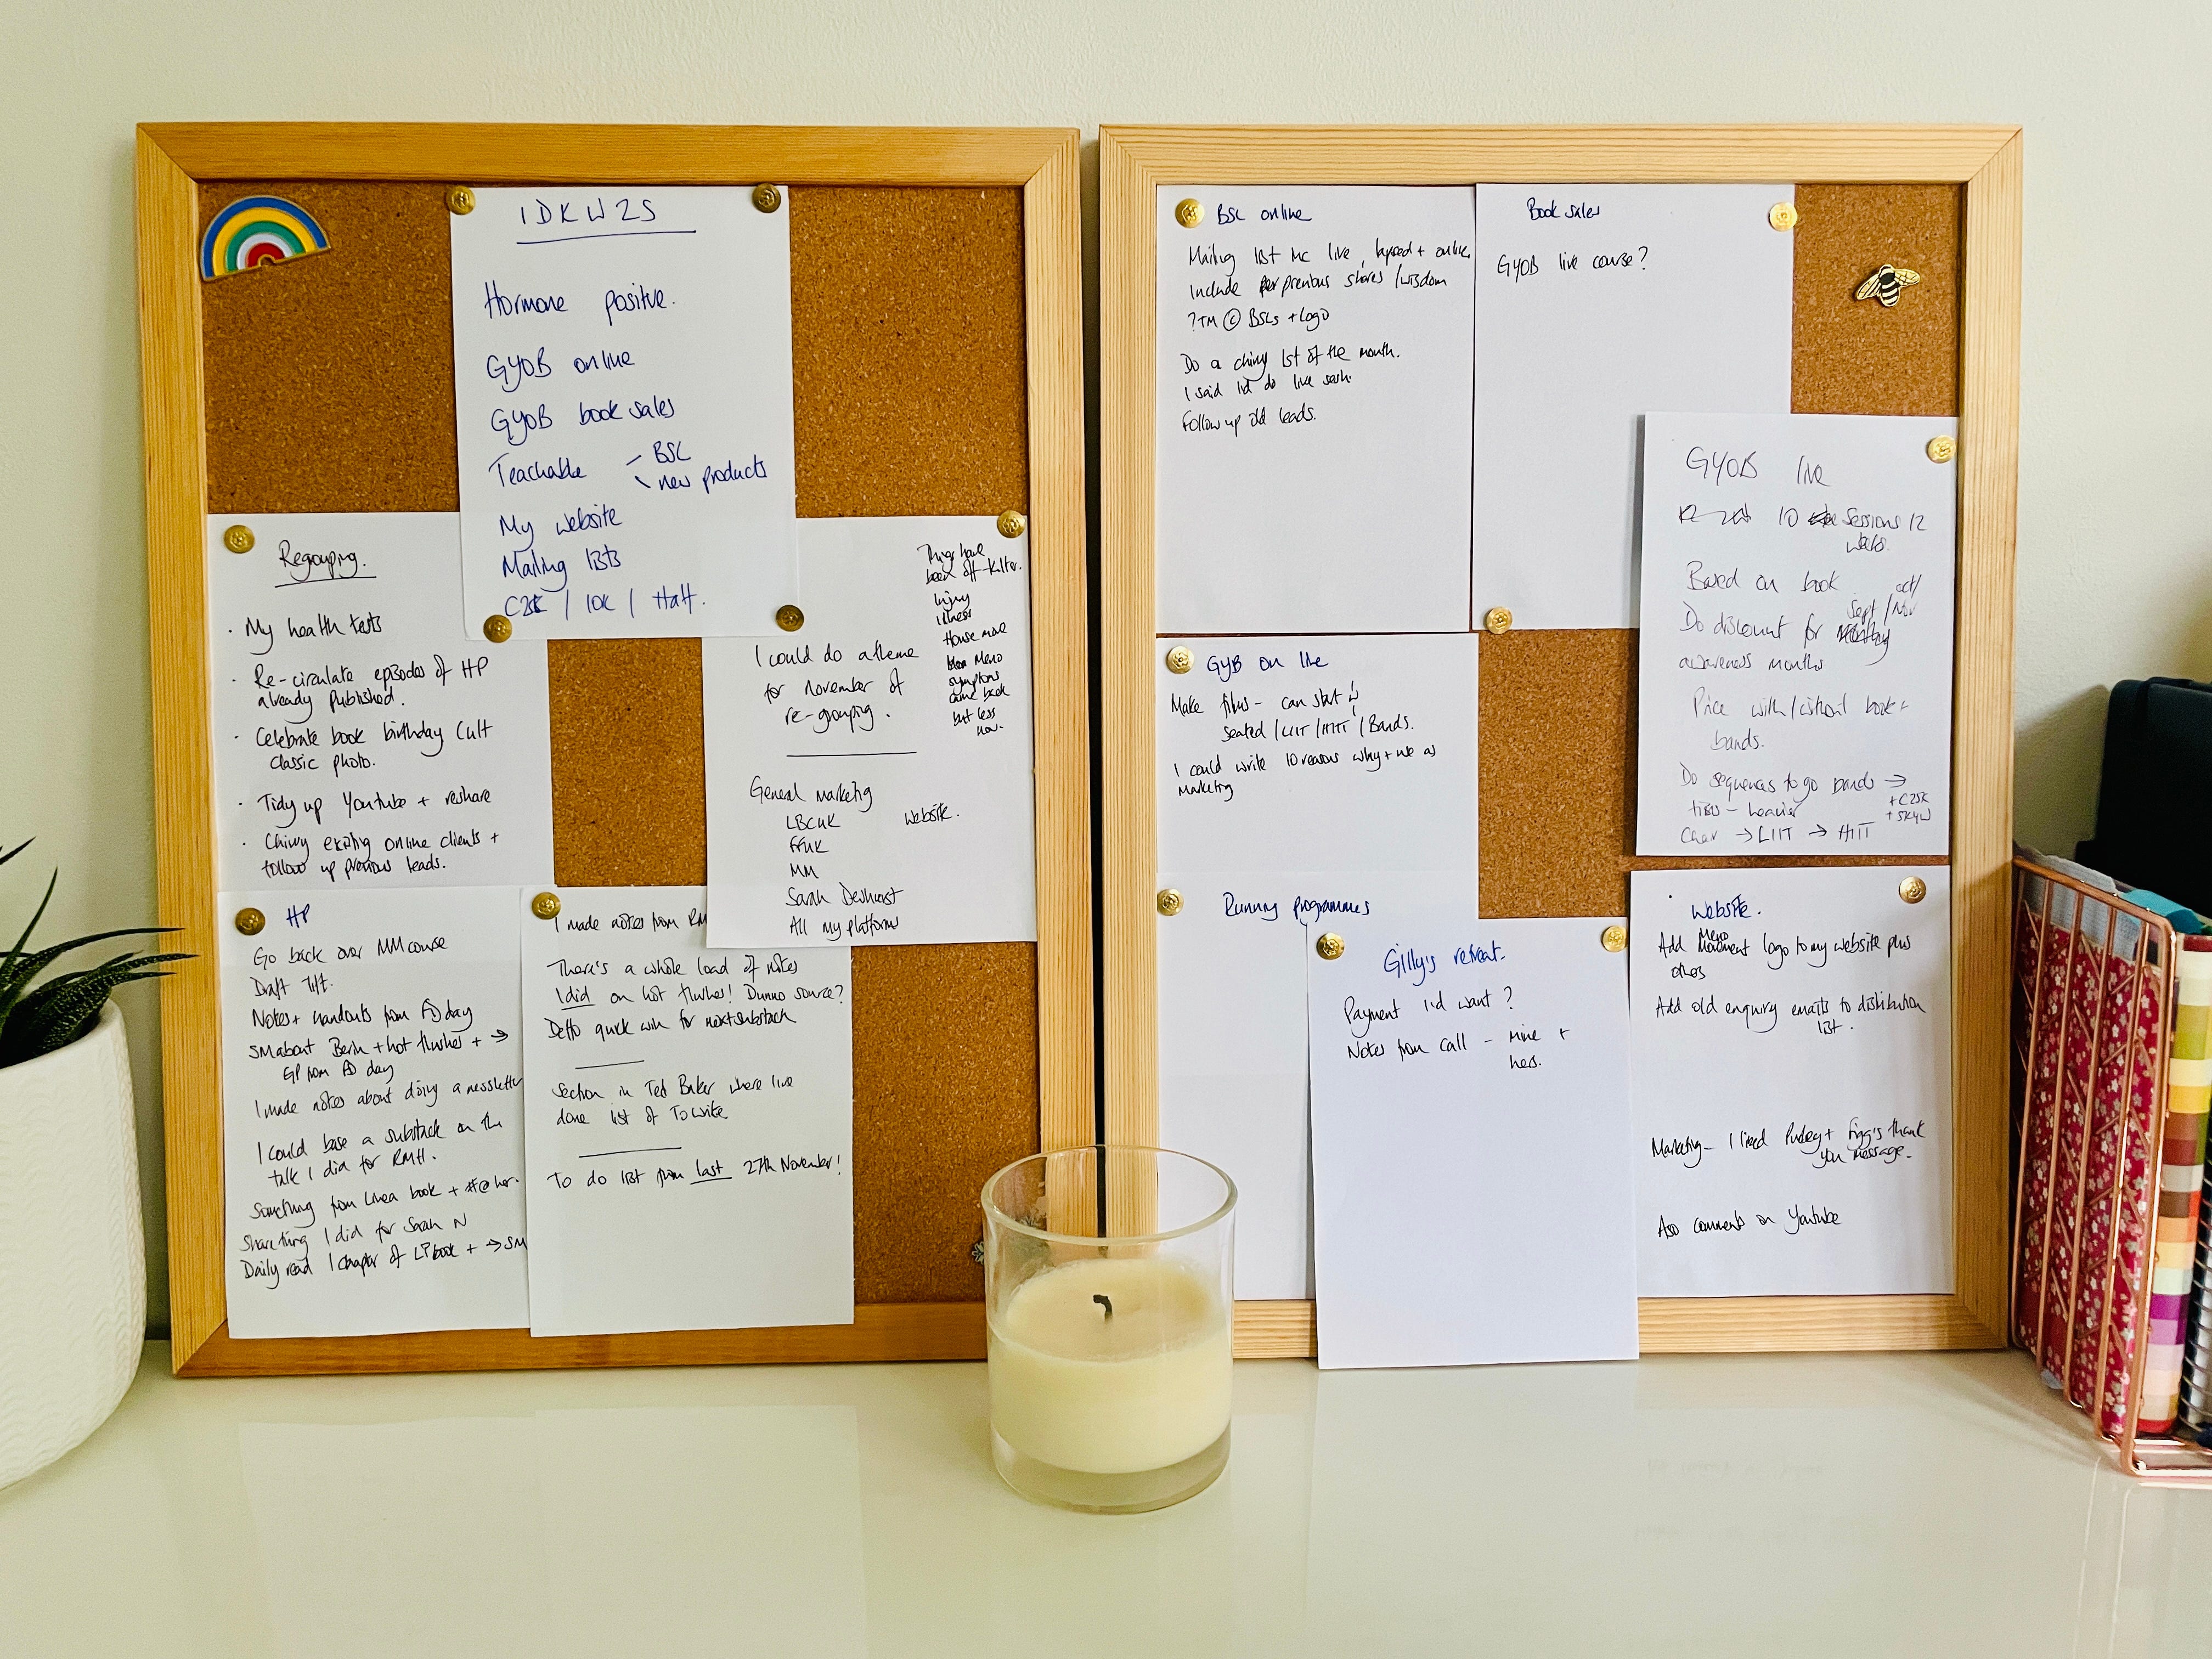 IDKW2S
Hormone positive.
GYOB online
GYOB book sales
Teachable - BSC
- new products
My website
Mailing lists
C25K / 10K / Half.
Regrouping.
· My health tests
· Re-circulate episodes of HP
already published.
· Celebrate book birthday Cult
classic photo.
· Tidy up Youtube + reshare
· Chivvy existing online clients +
follow up previous leads.
Things have
been off-kilter.
Injury
illness
House move
Meno
symptoms
came back
but less
now.
I could do a theme
for november of
re-grouping.
General marketing
LBCUK website.
FFUK
MM
Sarah Dewhurst
All my platforms
HP
Go back over MM course
Draft
Notes + handouts from day
SM about Berlin + hot flushes + →
GP from day
I made notes about doing a newsletter
I could base a substack on the
talk I did for RMH.
Something from book + #@ her.
Share thing I did for Sarah N
Daily read 1 chapter of book + → SM
I made notes from RM
There's a whole load of notes
I did on hot flushes! Dunno source?
Defo quick win for next substack
Section in Ted Baker where I've
done list of To write
To do list from last 27th November!
BSC online
Mailing list inc live, lapsed + online
Include previous shares / wisdom
? TM © BSCs + logo
Do a chivvy 1st of the month.
I said I'd do live sesh.
Follow up old leads.
Book sales
GYOB live course?
GYOB live
10 sessions 12
weeks.
Based on book
Do discount for Sept / oct / Nov
awareness months
Price with / without book +
bands.
Do sequences to go bands →
tibs - heavier + C25K
+ 5K4W
Chair → LIIT → HIIT
GYB on line
Make films - can start w
Seated / LIIT / HIIT / Bands.
I could write 10 reasons why + use as
marketing
Running programmes
Gilly's retreat.
Payment I'd want?
Notes from call - mine +
hers.
Website.
Add Meno Movement logo to my website plus
others
Add old enquiry emails to distribution
list.
Marketing - I liked Pudey + Figg's thank
you message.
Also comments on Youtube